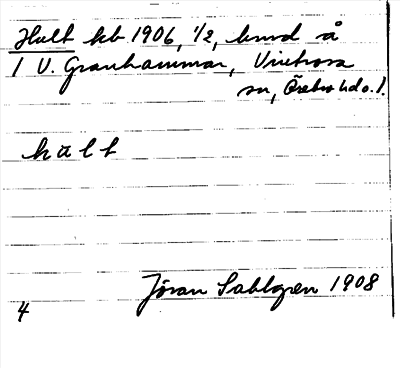 Hult kb 1906, 1/2, kmd å
1 V. Granhammar, Vintrosa
sn, Örebro hd o. l.
hält
Jöran Sahlgren 1908
4